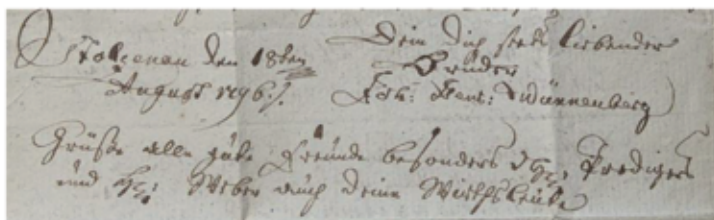 Stolzenau den 18ten
August 1796./.
Dein dich stets liebender
Bruder
Joh: Henr: Wünnenberg
Grüße alle gute Freunde besonders d H. Prediger
und H: Weber auch deine Wirthsleute